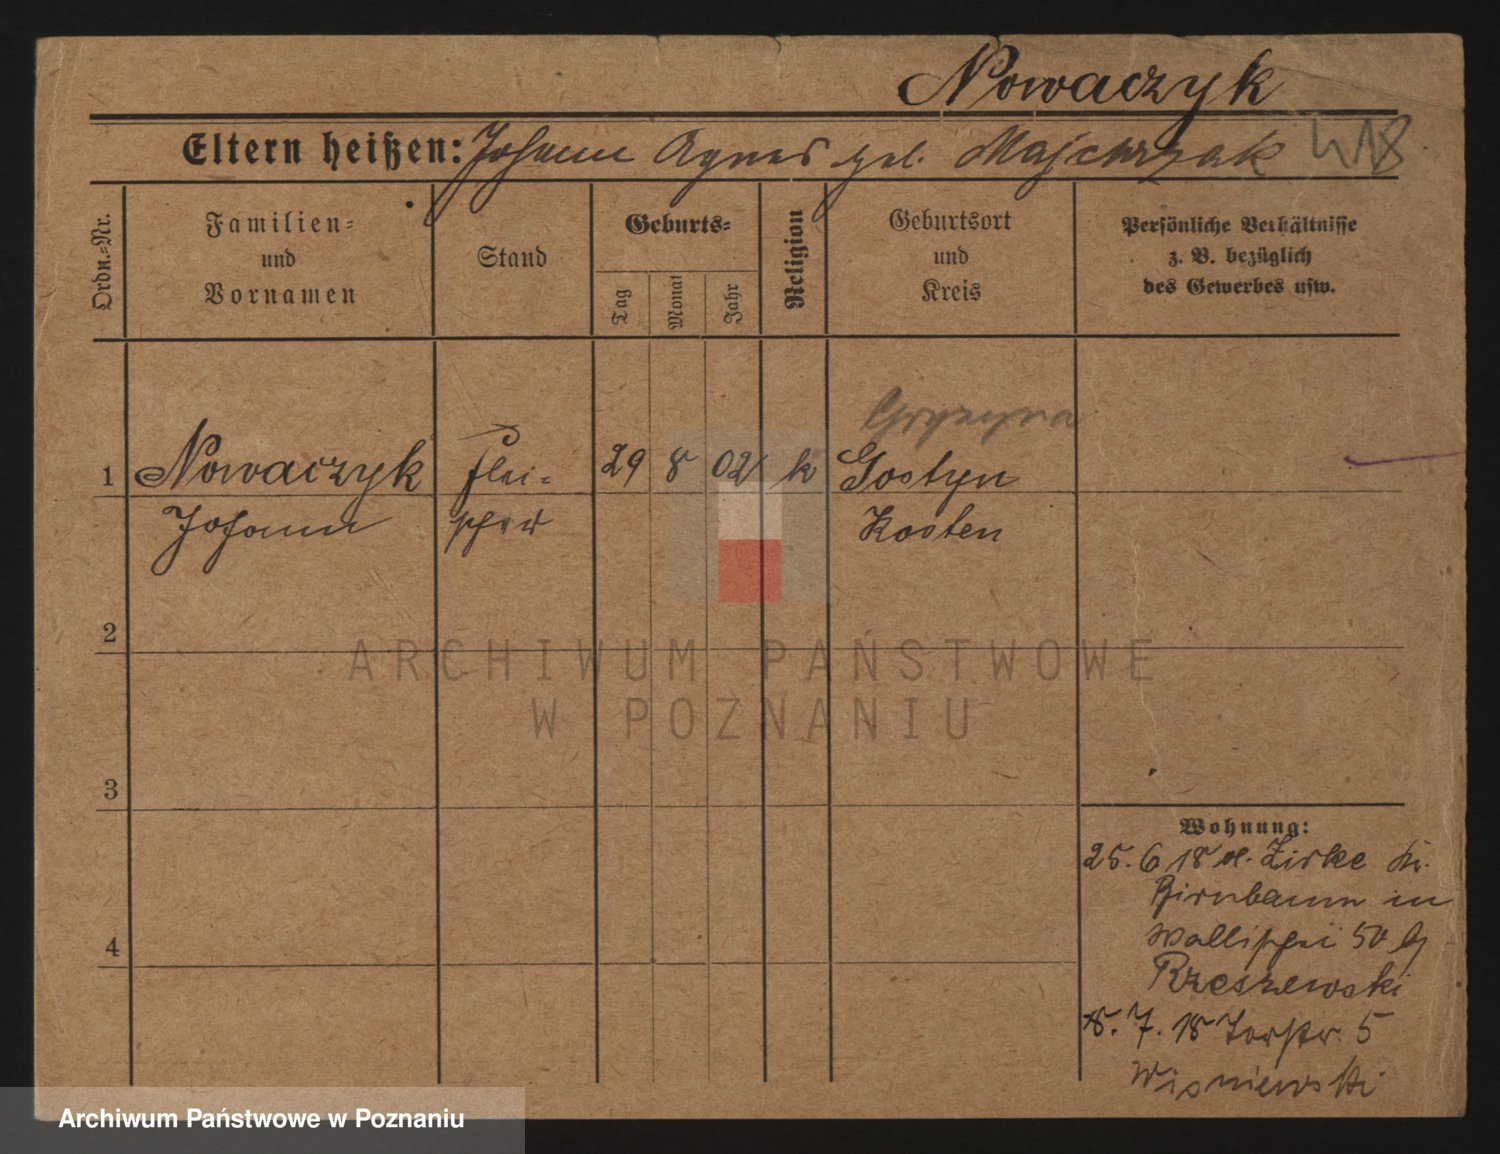 Nowaczyk
Eltern heißen: Johann Agnes geb. Majchrzak
Ordn.-Nr.
Familien-
und
Vornamen
Stand
Geburts-
Tag
Monat
Jahr
Religion
Geburtsort
und
Kreis
Persönliche Verhältnisse
z. B. bezüglich
des Gewerbes usw.
Gryzyna
1 Nowaczyk Flei- 29 8 02 k Gostyn
Johann scher Kosten
2
3
4
Wohnung:
25. 6 18 v. Zirke Kr.
Birnbaum in
Wallischei 50 b/
Rzeszewski
8. 7. 18 Torstr. 5
Wisniewski
ARCHIWUM PAŃSTWOWE
W POZNANIU
Archiwum Państwowe w Poznaniu